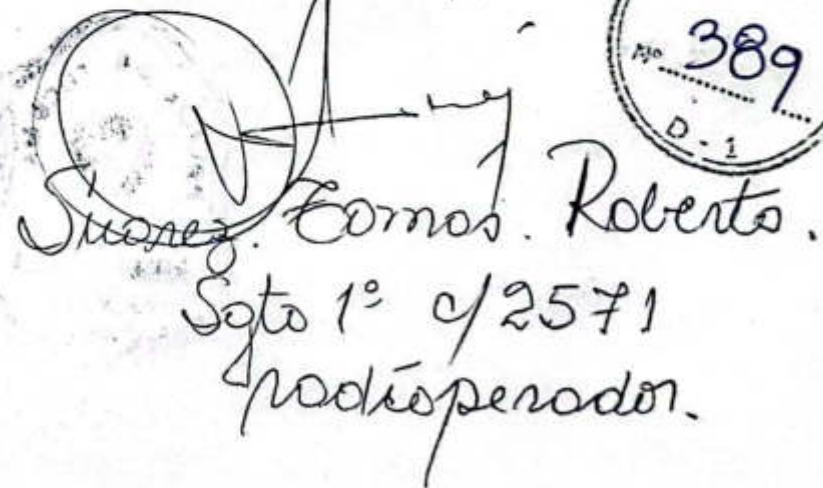 389
D-1
Suarez. Tomas. Roberto.
Sgto 1° c/2571
radioperador.